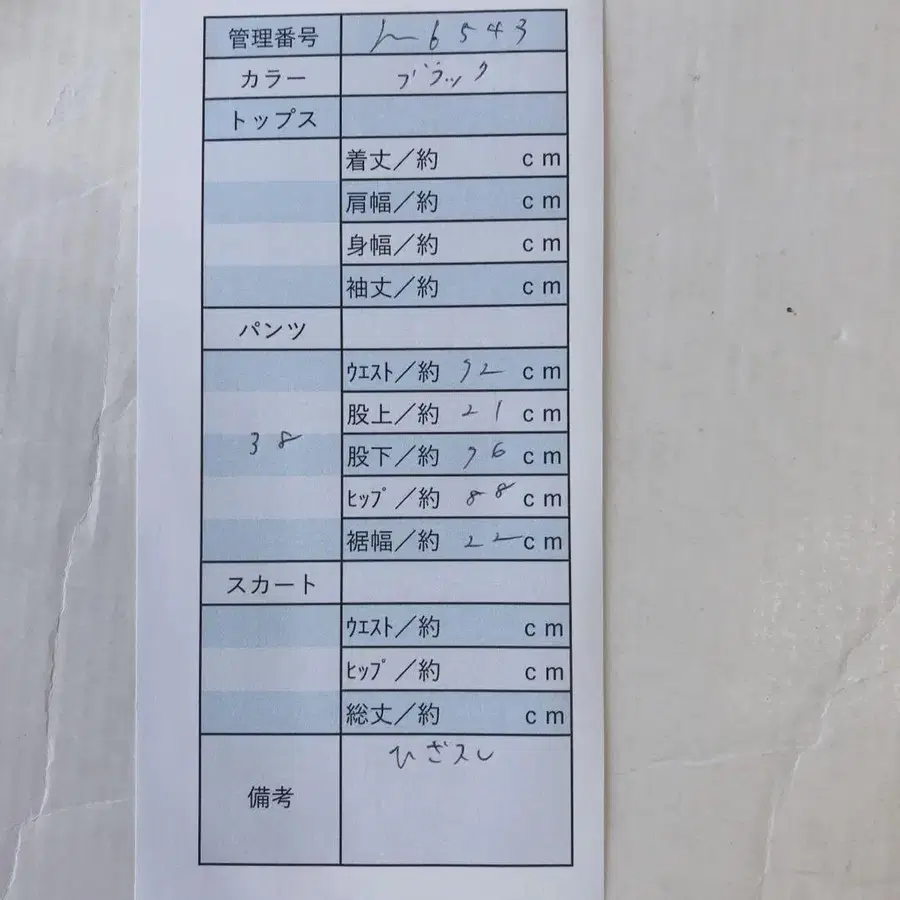 管理番号 6543
カラー ブラック
トップス
着丈／約 cm
肩幅／約 cm
身幅／約 cm
袖丈／約 cm
パンツ
38
ｳｴｽﾄ／約 72 cm
股上／約 21 cm
股下／約 76 cm
ﾋｯﾌﾟ／約 88 cm
裾幅／約 22 cm
スカート
ｳｴｽﾄ／約 cm
ﾋｯﾌﾟ／約 cm
総丈／約 cm
備考 ひざスレ